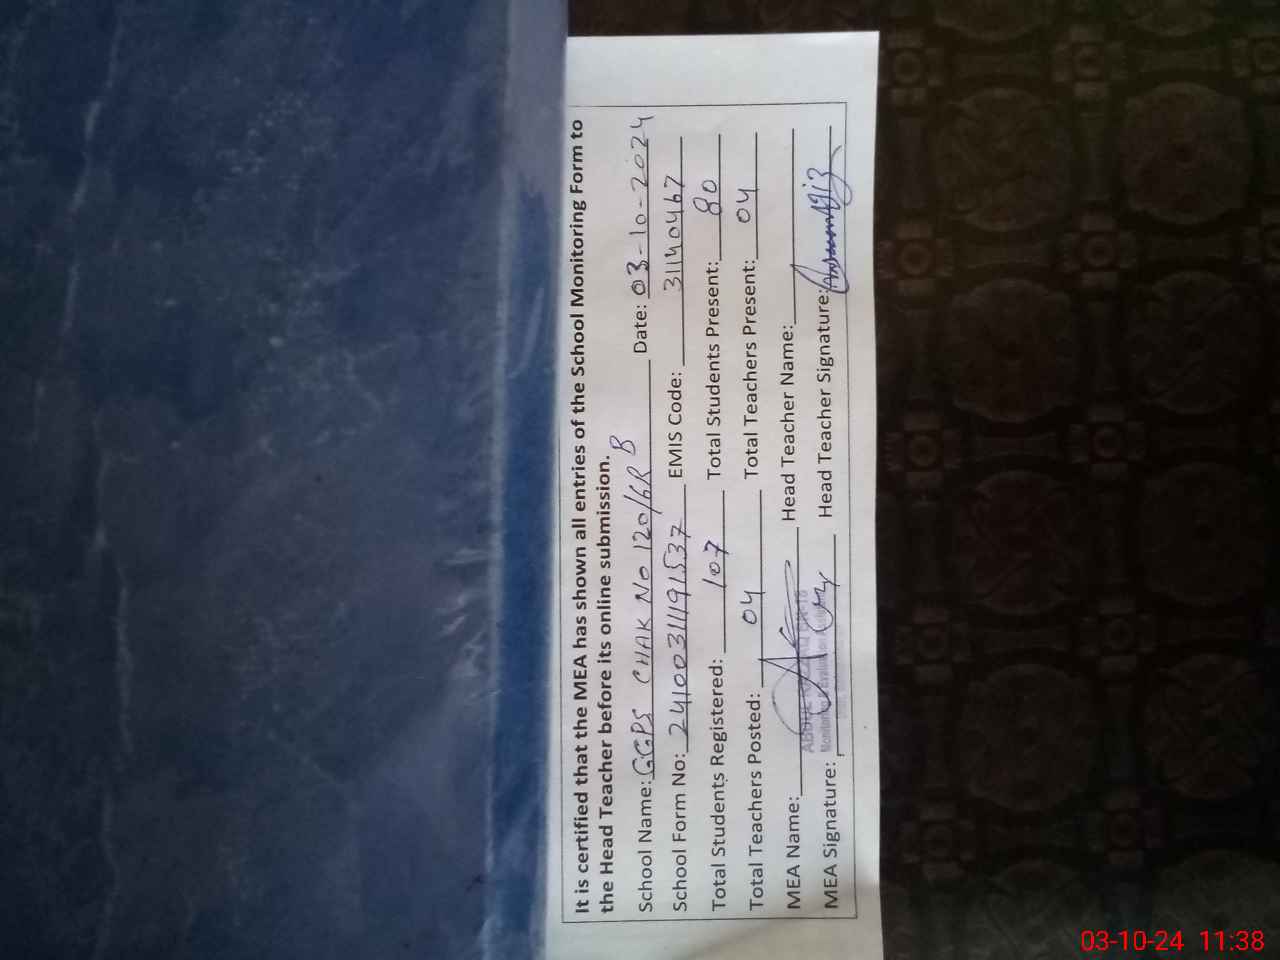 It is certified that the MEA has shown all entries of the School Monitoring Form to
the Head Teacher before its online submission.
School Name: GGPS CHAK No 120/GR B Date: 03-10-2024
School Form No: 24100311191537 EMIS Code: 31140467
Total Students Registered: 107 Total Students Present: 80
Total Teachers Posted: 04 Total Teachers Present: 04
MEA Name: Head Teacher Name:
MEA Signature: Head Teacher Signature:
03-10-24 11:38